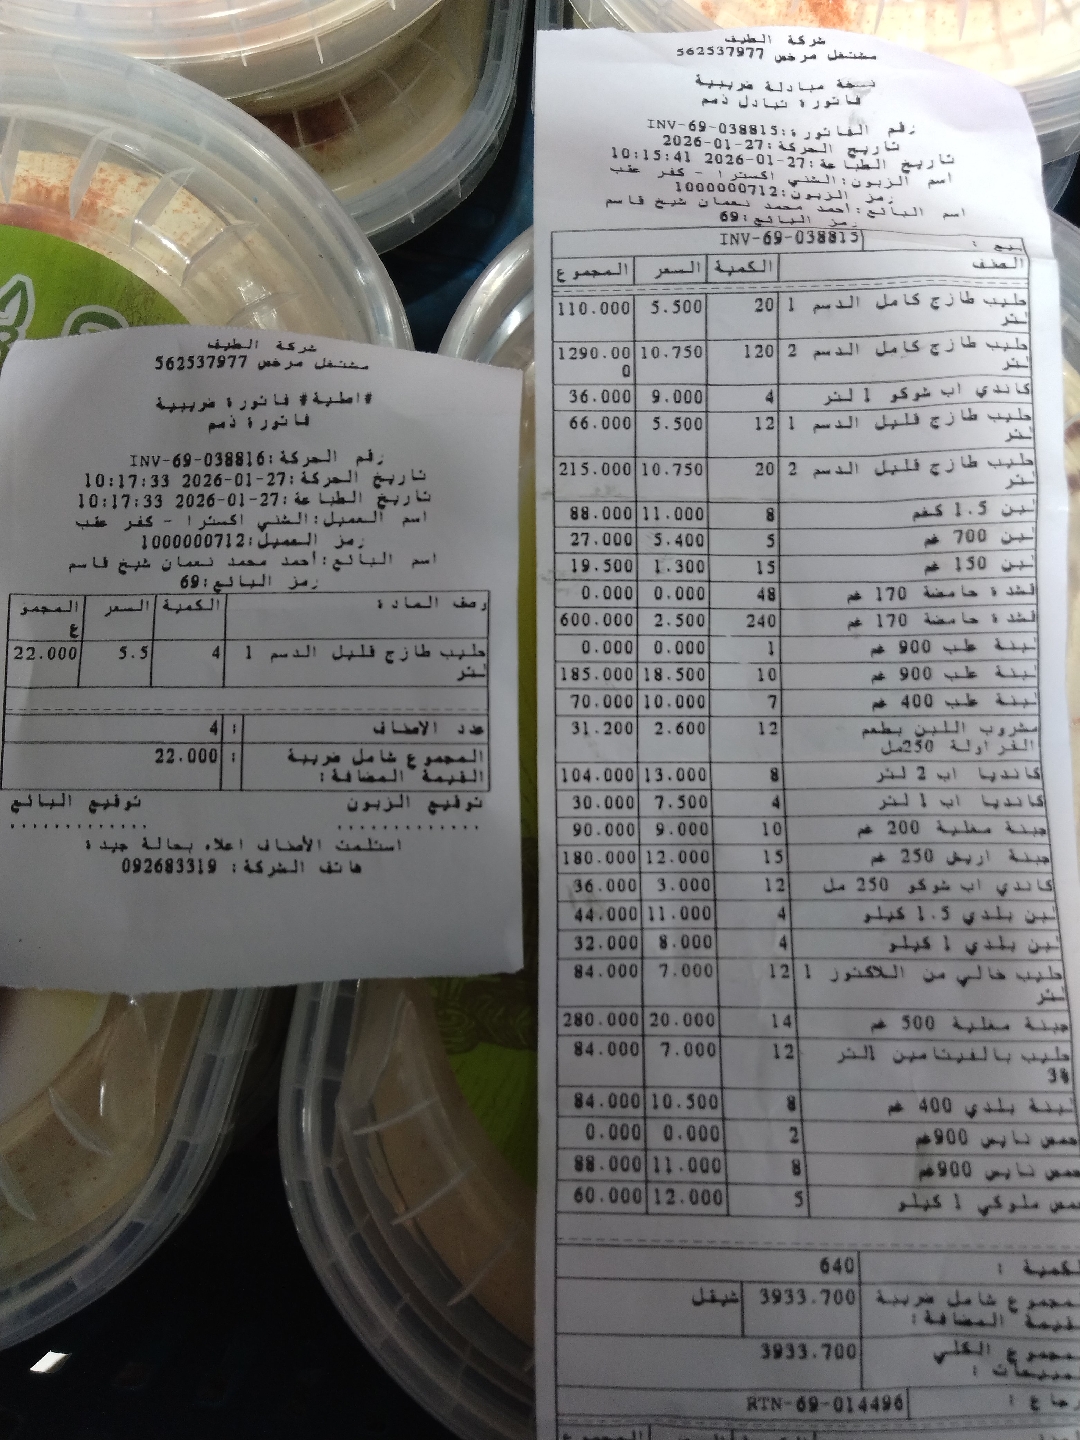 شركة الطيف
مشتغل مرخص 562537977
#اصلية# فاتورة ضريبية
فاتورة ذمم
رقم الحركة:INV-69-038816
تاريخ الحركة:27-01-2026 10:17:33
تاريخ الطباعة:27-01-2026 10:17:33
اسم العميل:الشني اكسترا - كفر عقب
رمز العميل:1000000712
اسم البائع:أحمد محمد نعمان شيخ قاسم
رمز البائع:69
وصف المادة الكمية السعر المجموع
حليب طازج قليل الدسم 1 لتر 4 5.5 22.000
عدد الاصناف : 4
المجموع شامل ضريبة : 22.000
القيمة المضافة:
توقيع الزبون توقيع البائع
............. .............
استلمت الأصناف اعلاه بحالة جيدة
هاتف الشركة: 092683319
شركة الطيف
مشتغل مرخص 562537977
نسخة مبادلة ضريبية
فاتورة تبادل ذمم
رقم الفاتورة:INV-69-038815
تاريخ الحركة:27-01-2026
تاريخ الطباعة:27-01-2026 10:15:41
اسم الزبون:الشني اكسترا - كفر عقب
رمز الزبون:1000000712
اسم البائع:أحمد محمد نعمان شيخ قاسم
رمز البائع:69
بيع : INV-69-038815
الصنف الكمية السعر المجموع
حليب طازج كامل الدسم 1 لتر 20 5.500 110.000
حليب طازج كامل الدسم 2 لتر 120 10.750 1290.000
كاندي اب شوكو 1 لتر 4 9.000 36.000
حليب طازج قليل الدسم 1 لتر 12 5.500 66.000
حليب طازج قليل الدسم 2 لتر 20 10.750 215.000
لبن 1.5 كغم 8 11.000 88.000
لبن 700 غم 5 5.400 27.000
لبن 150 غم 15 1.300 19.500
قشدة حامضة 170 غم 48 0.000 0.000
قشدة حامضة 170 غم 240 2.500 600.000
لبنة علب 900 غم 1 0.000 0.000
لبنة علب 900 غم 10 18.500 185.000
لبنة علب 400 غم 7 10.000 70.000
مشروب اللبن بطعم الفراولة 250مل 12 2.600 31.200
كانديا اب 2 لتر 8 13.000 104.000
كانديا اب 1 لتر 4 7.500 30.000
جبنة مغلية 200 غم 10 9.000 90.000
جبنة اريش 250 غم 15 12.000 180.000
كاندي اب شوكو 250 مل 12 3.000 36.000
لبن بلدي 1.5 كيلو 4 11.000 44.000
لبن بلدي 1 كيلو 4 8.000 32.000
حليب خالي من اللاكتوز 1 لتر 12 7.000 84.000
جبنة مغلية 500 غم 14 20.000 280.000
حليب بالفيتامين 1لتر 3% 12 7.000 84.000
لبنة بلدي 400 غم 8 10.500 84.000
حمص نايس 900غم 2 0.000 0.000
حمص نايس 900غم 8 11.000 88.000
حمص ملوكي 1 كيلو 5 12.000 60.000
الكمية : 640
المجموع شامل ضريبة 3933.700 شيقل
القيمة المضافة:
المجموع الكلي 3933.700
للمبيعات :
ارجاع : RTN-69-014496